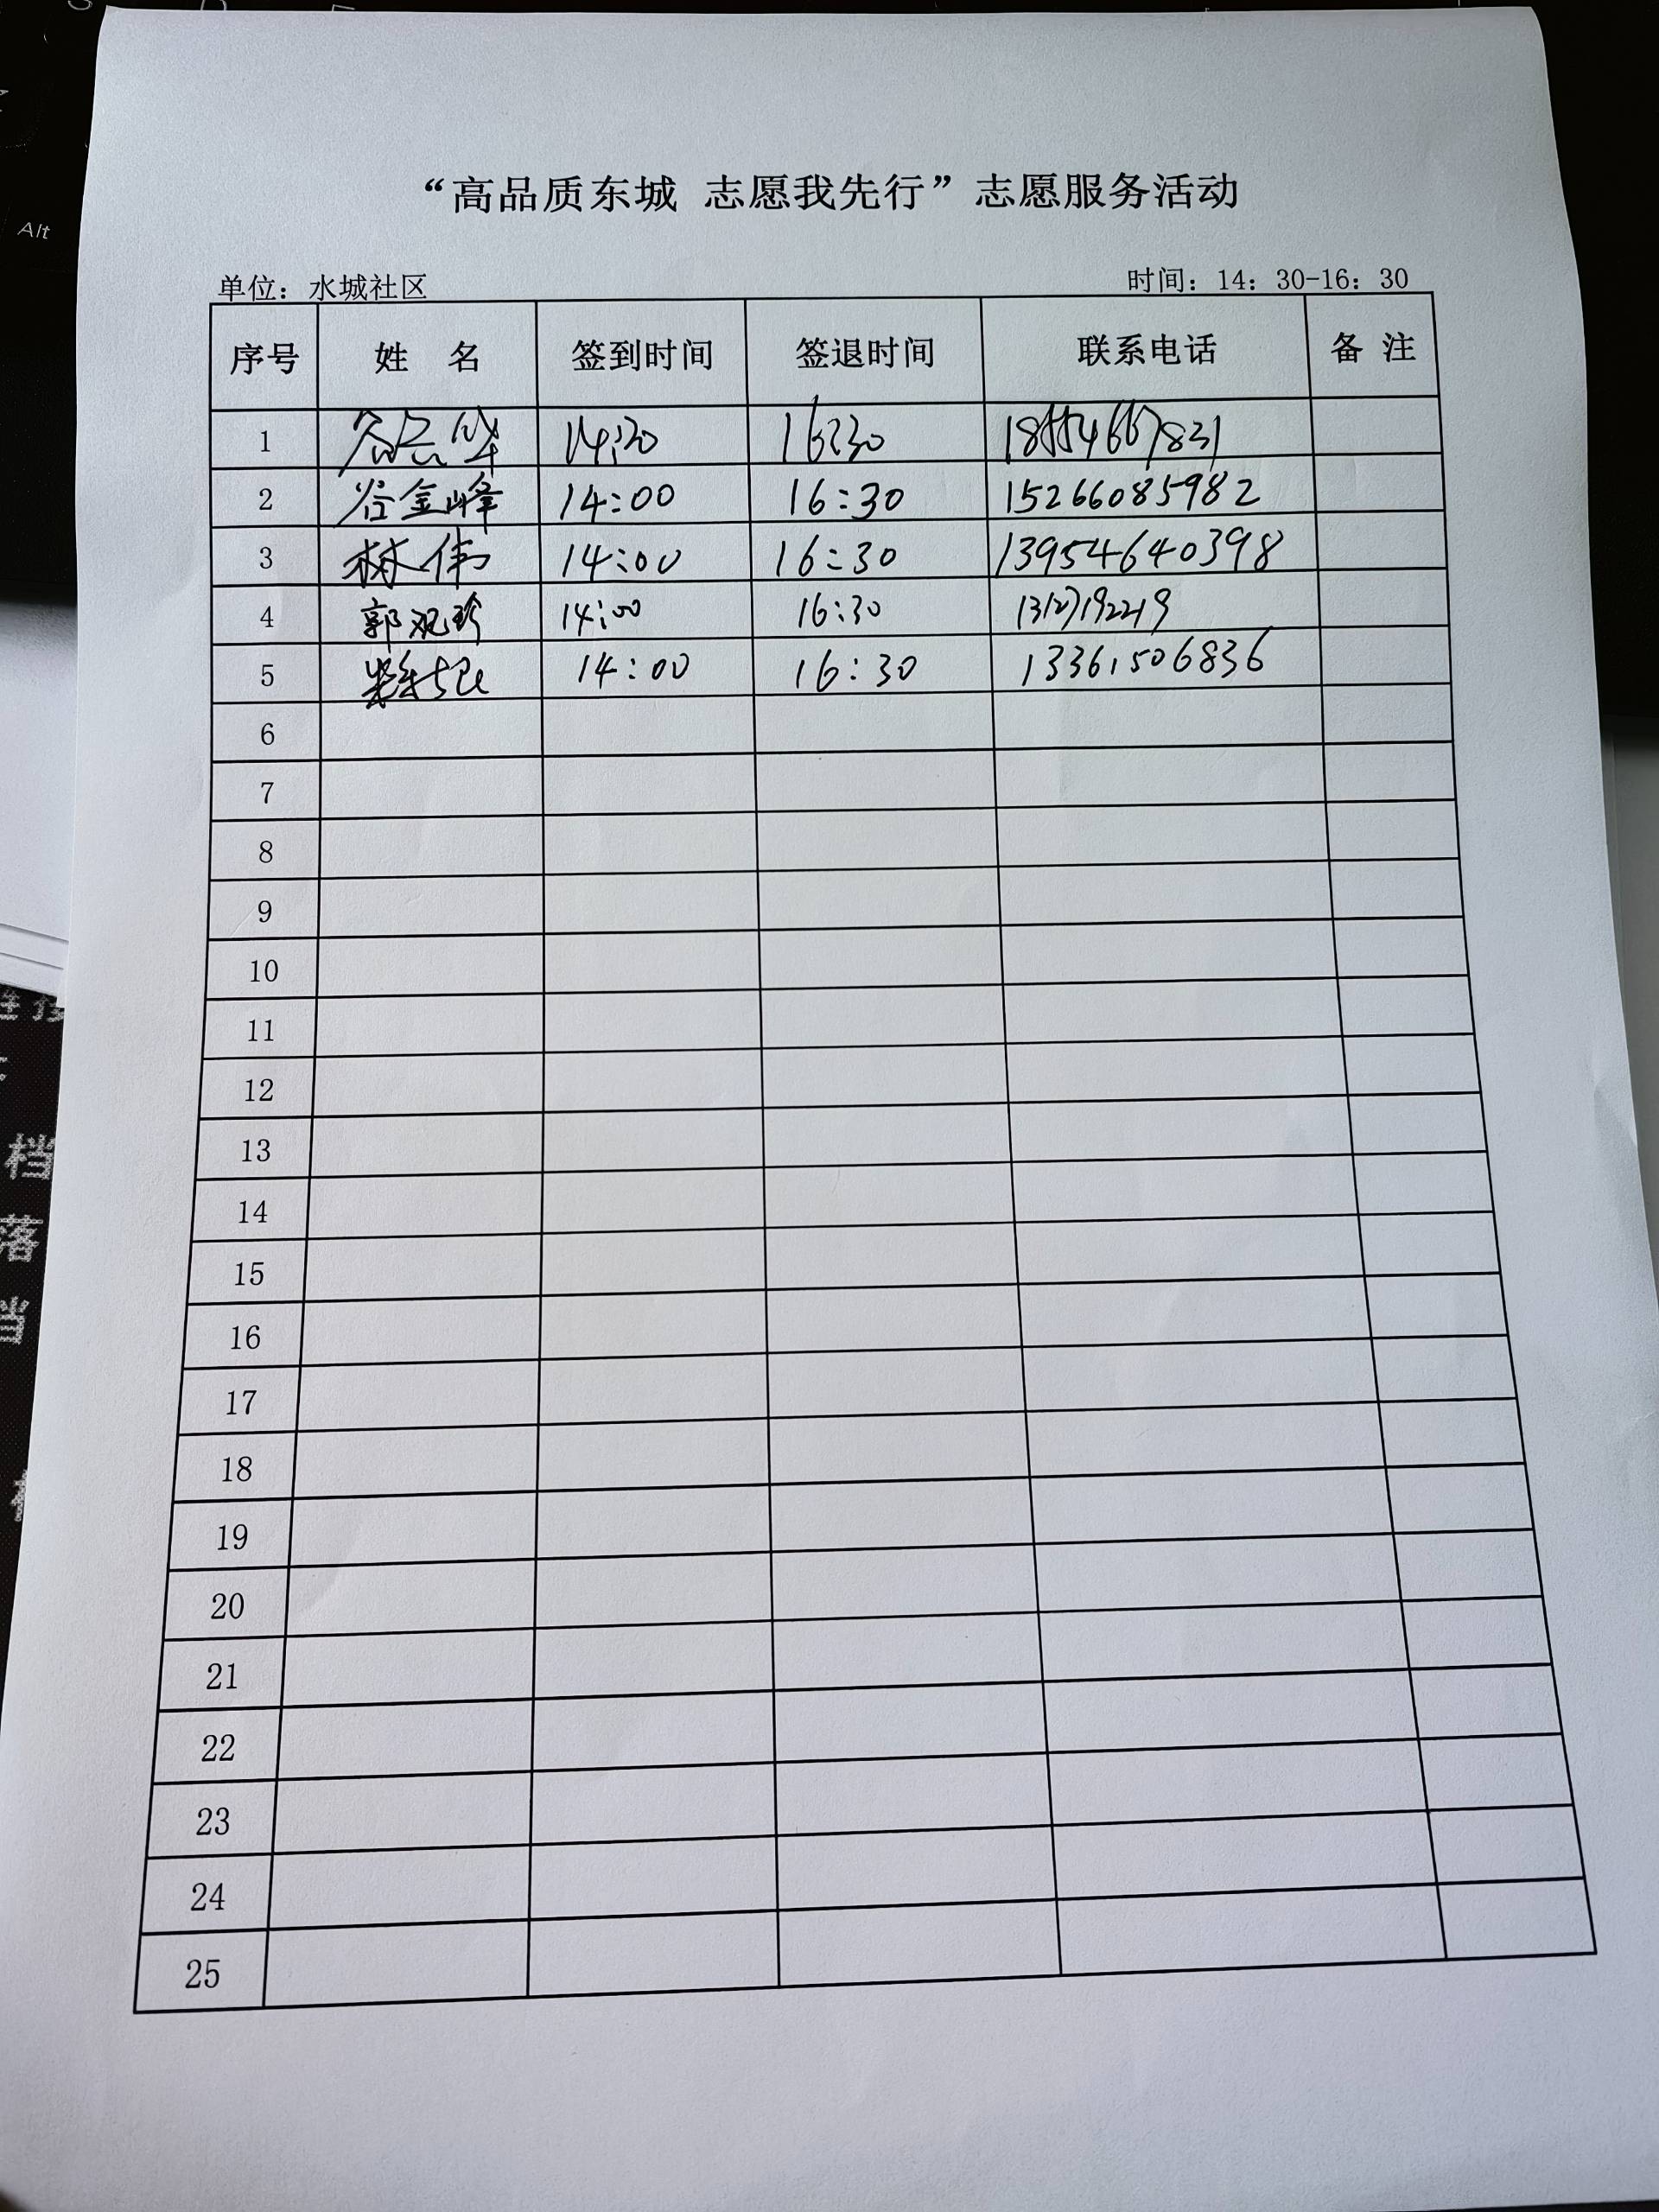 Alt
“高品质东城 志愿我先行”志愿服务活动
单位：水城社区 时间：14：30-16：30
序号 姓 名 签到时间 签退时间 联系电话 备 注
1 16:30
2 谷金峰 14:00 16:30 15266085982
3 林伟 14:00 16:30 13954640398
4 郭观珍 14:00 16:30
5 14:00 16:30 13361506836
6
7
8
9
10
11
12
13
14
15
16
17
18
19
20
21
22
23
24
25
档
落